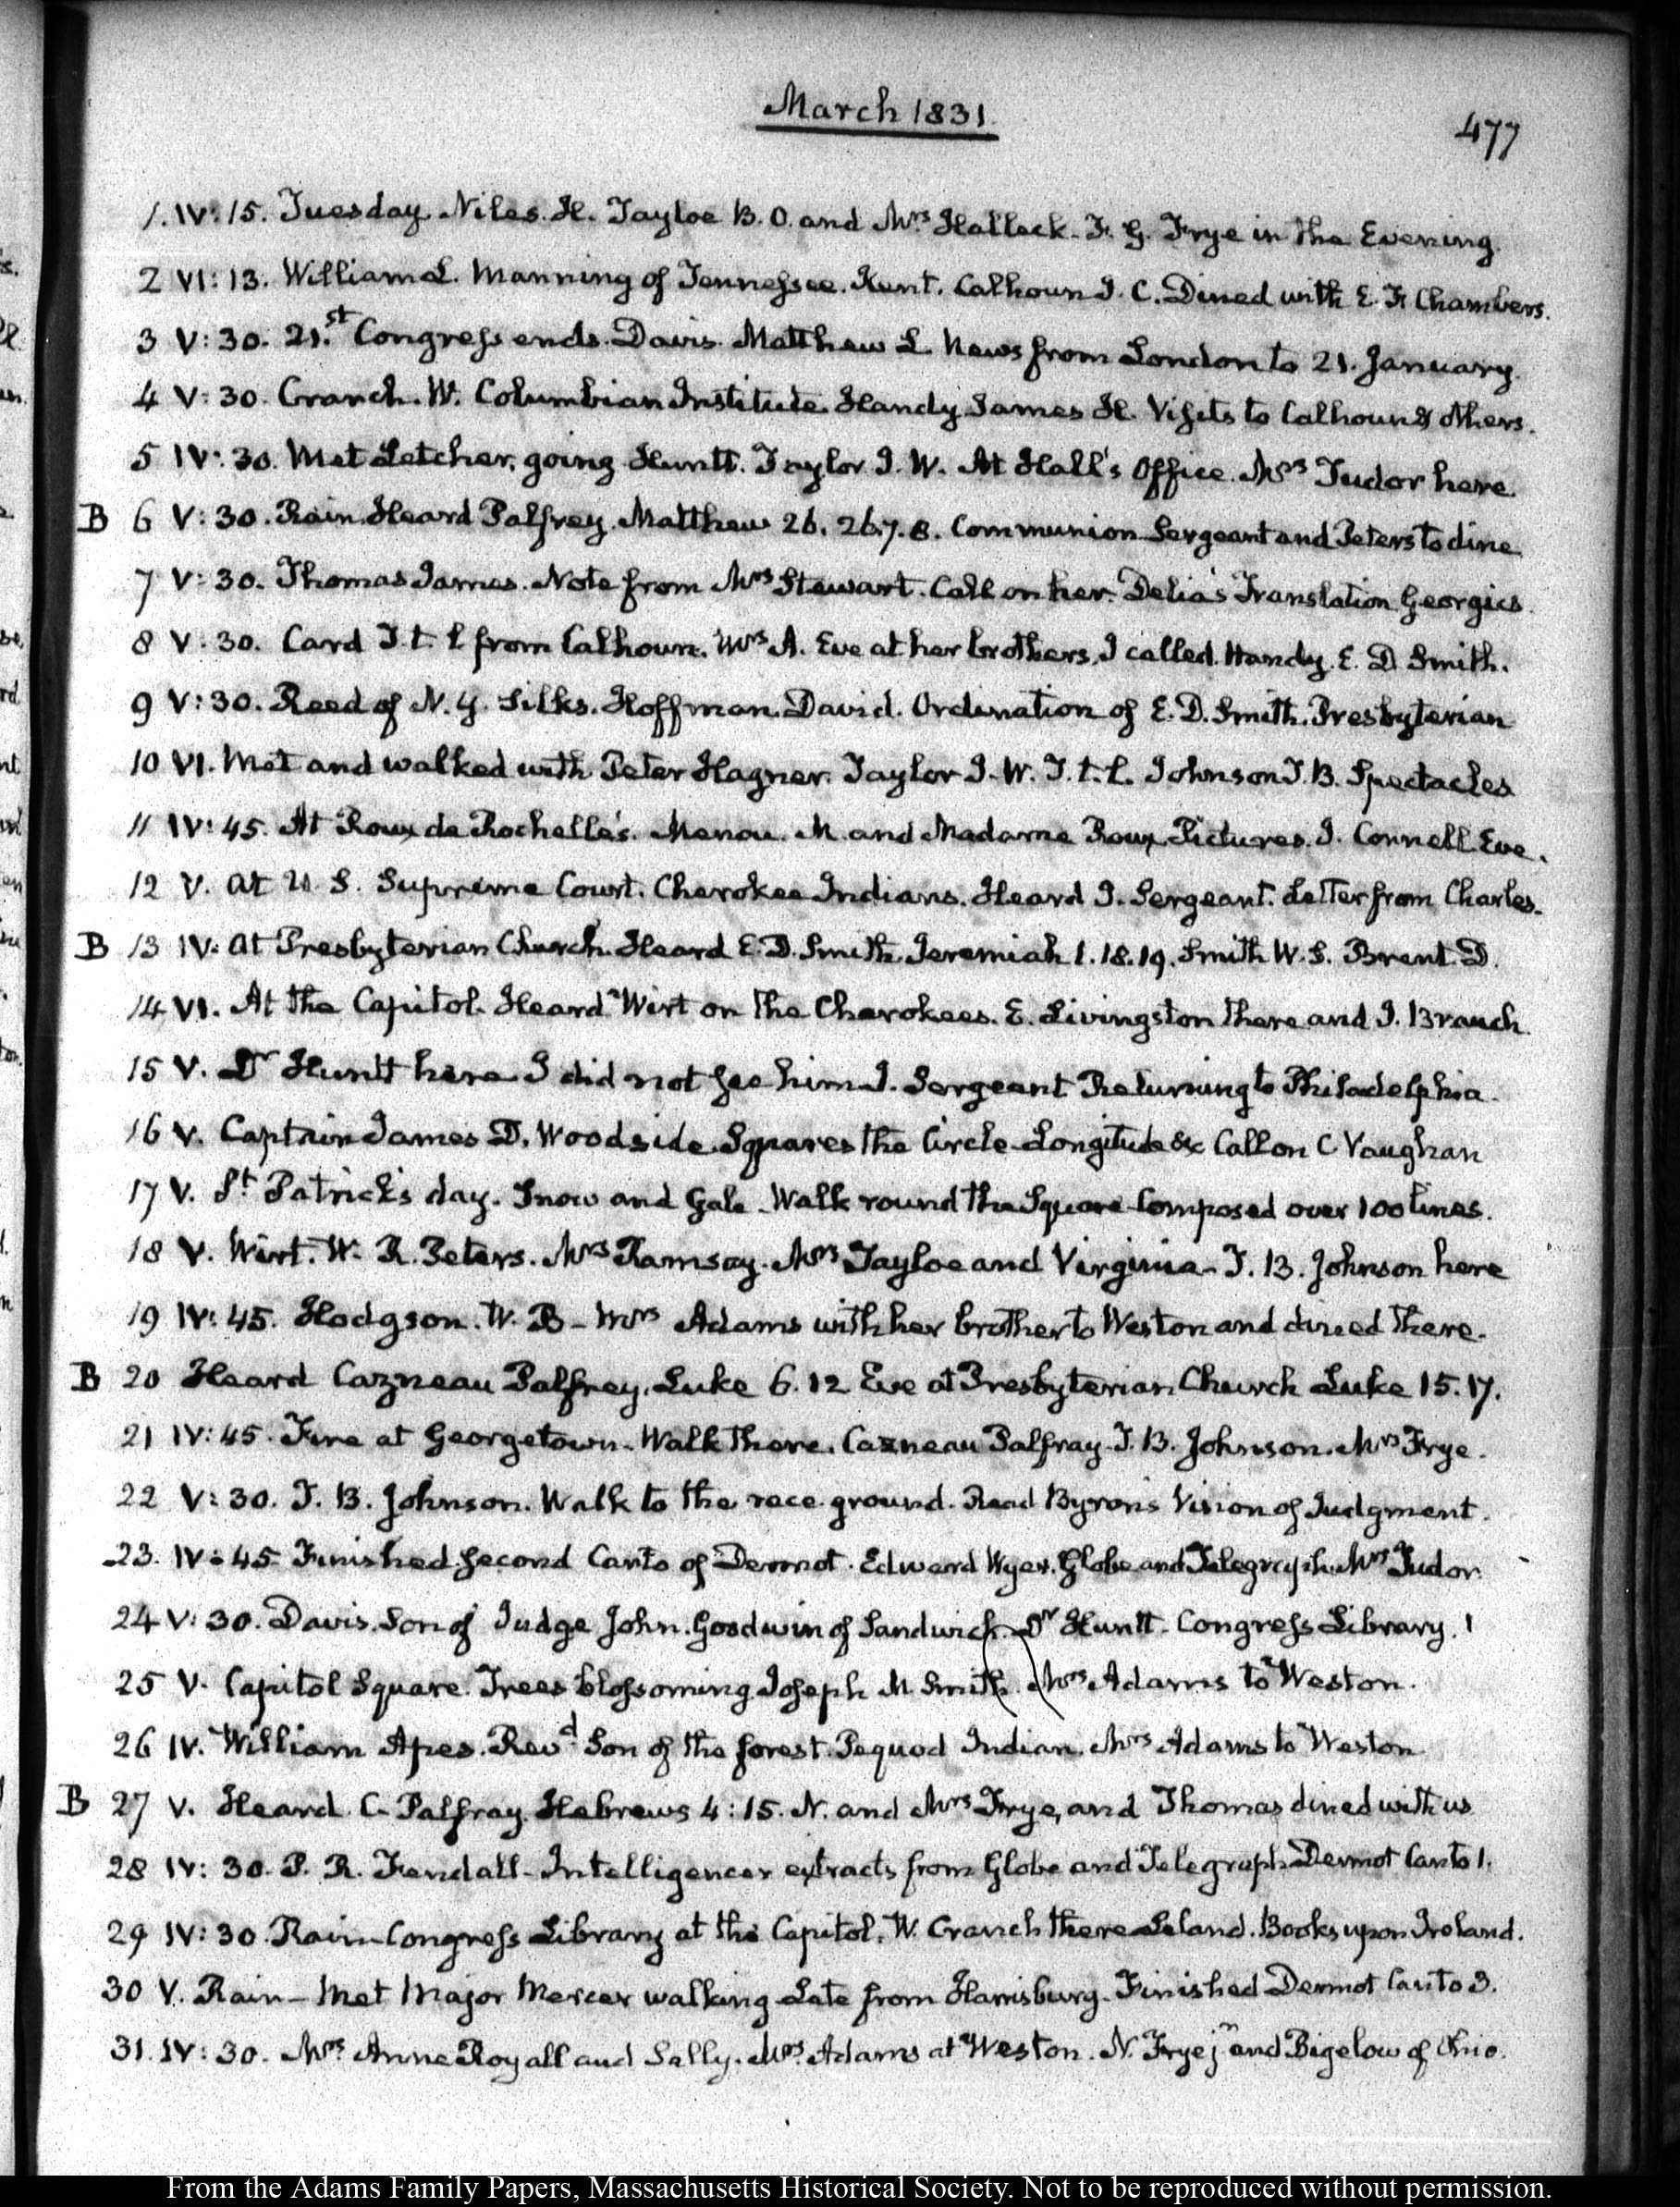 March 1831
477
1. IV:15. Tuesday. Niles. H. Tayloe B. O. and Mrs Halleck. F. G. Frye in the Evening.
2 VI:13. William L. Manning of Tennessee. Kent. Calhoun J. C. Dined with E. F. Chambers.
3 V:30. 21.st Congress ends. Davis. Matthew L. News from London to 21. January.
4 V:30. Cranch. W. Columbian Institute. Handy James H. Visits to Calhoun & others.
5 IV:30. Met Letcher, going Huntt. Taylor J. W. At Hall's Office. Mrs Tudor here.
B 6 V:30. Rain. Heard Palfrey. Matthew 26. 26.7.8. Communion Sergeant and Peters to dine
7 V:30. Thomas James. Note from Mrs Stewart. Call on her. Delia's Translation Georgics
8 V:30. Card T. t. l from Calhoun. Mrs A. Eve at her brothers, I called. Handy. E. D. Smith.
9 V:30. Reed of N. Y. Silks. Hoffman David. Ordination of E. D. Smith. Presbyterian
10 VI. Met and walked with Peter Hagner. Taylor J. W. T. t. l. Johnson T. B. Spectacles
11 IV:45. At Roux de Rochelle's. Menou. M. and Madame Roux Pictures. J. Connell Eve.
12 V. At U. S. Supreme Court. Cherokee Indians. Heard J. Sergeant. Letter from Charles.
B 13 IV. At Presbyterian Church. Heard E. D. Smith Jeremiah 1. 18. 19. Smith W. S. Brent. D.
14 VI. At the Capitol. Heard Wirt on the Cherokees. E. Livingston there and J. Branch.
15 V. Dr Huntt here I did not see him. J. Sergeant Returning to Philadelphia.
16 V. Captain James D. Woodside. Squares the Circle. Longitude &c Call on C Vaughan
17 V. St Patrick's day. Snow and Gale. Walk round the Square Composed over 100 lines.
18 V. Wirt. W. R. Peters. Mrs Ramsay. Mrs Tayloe and Virginia - T. B. Johnson here
19 IV:45. Hodgson. W. B - Mrs Adams with her brother to Weston and dined there.
B 20 Heard Cazneau Palfrey. Luke 6. 12 Eve at Presbyterian Church Luke 15. 17.
21 IV:45. Fire at Georgetown. Walk there. Cazneau Palfray. T. B. Johnson. Mrs Frye.
22 V:30. T. B. Johnson. Walk to the race ground. Read Byron's Vision of Judgment.
23. IV:45 Finished second Canto of Dermot. Edward Wyer. Globe and Telegraph. Mrs Tudor
24 V:30. Davis. Son of Judge John. Goodwin of Sandwich. Dr Huntt. Congress Library.
25 V. Capitol Square. Trees blossoming. Joseph M Smith. Mrs Adams to Weston.
26 IV. William Apes. Revd Son of the forest. Pequod Indian. Mrs Adams to Weston
B 27 V. Heard. C. Palfray. Hebrews 4:15. N. and Mrs Frye, and Thomas dined with us
28 IV:30. P. R. Fendall - Intelligencer extracts from Globe and Telegraph. Dermot Canto 1.
29 IV:30. Rain - Congress Library at the Capitol. W. Cranch there Leland. Books upon Ireland.
30 V. Rain - Met Major Mercer walking Late from Harrisburg. Finished Dermot Canto 3.
31. IV:30. Mrs. Anne Royall and Sally. Mrs. Adams at Weston. N. Frye jr and Bigelow of Ohio.
From the Adams Family Papers, Massachusetts Historical Society. Not to be reproduced without permission.